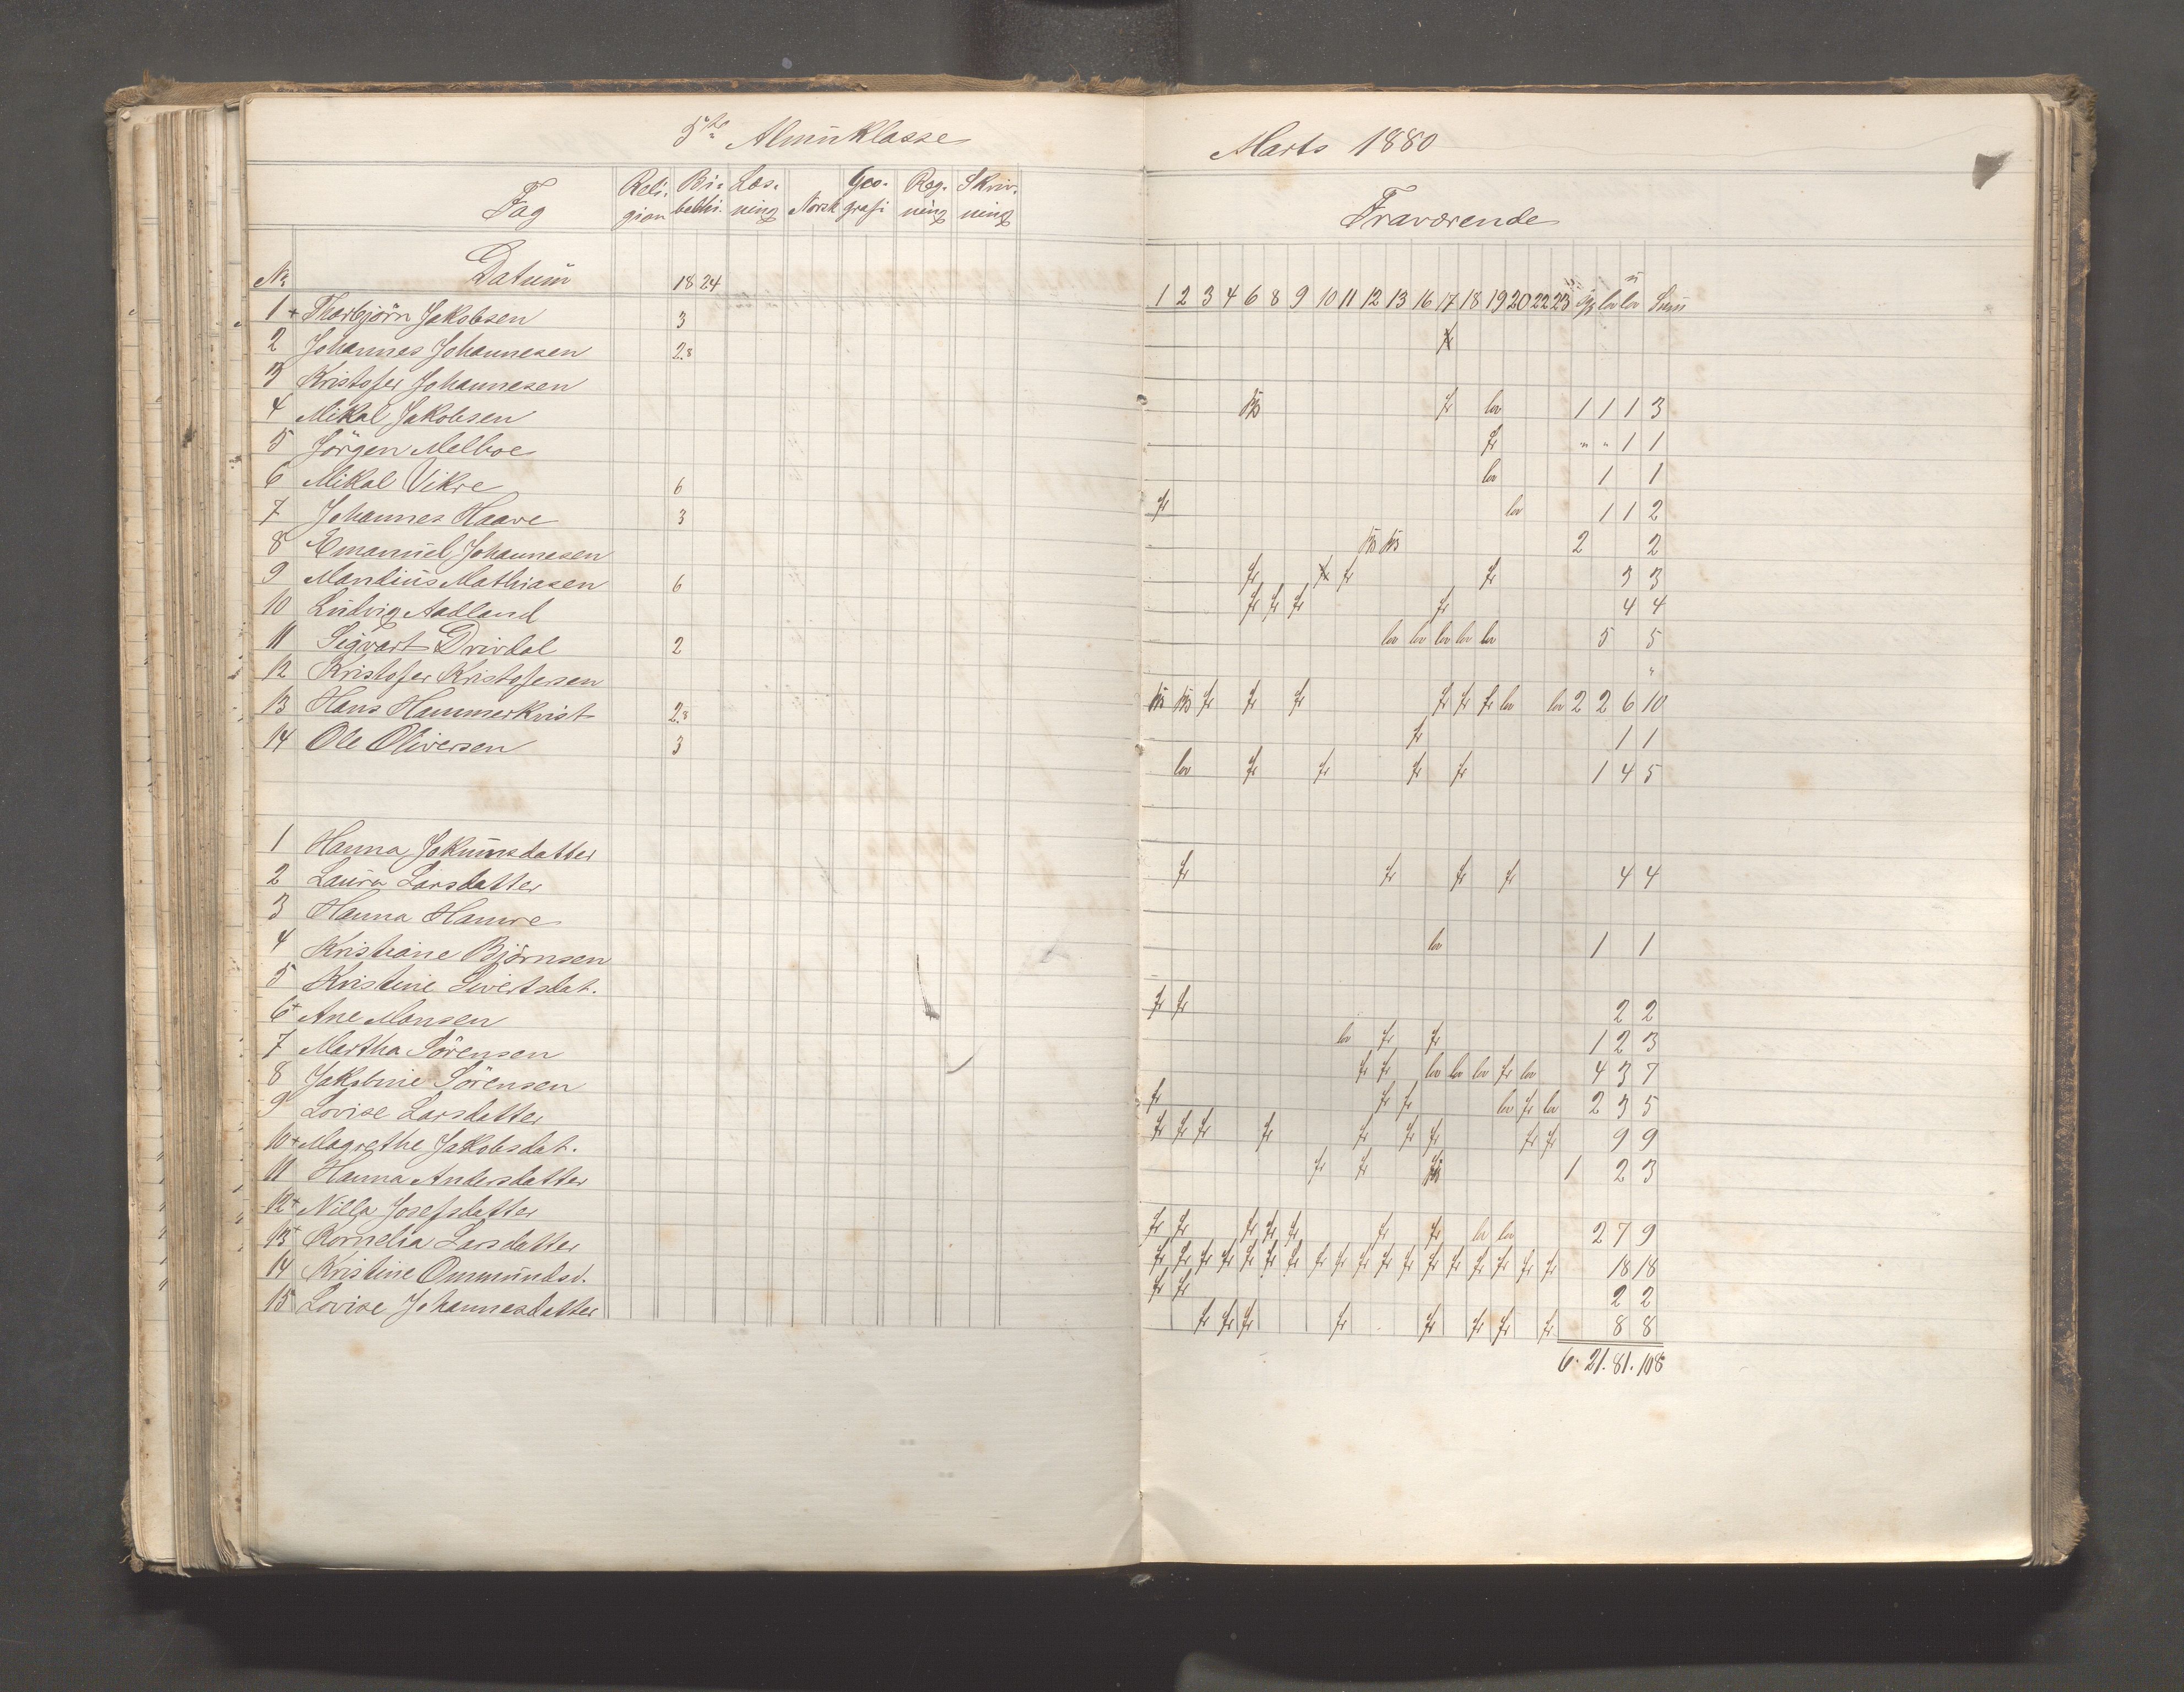 5te Almuklasse
Fag Reli- gion Bi- belhi. Læs- ning Norsk Geo- grafi Reg- ning Skriv- ning
No Datum 18 24
1 + Thorbjörn Jakobsen 3
2 Johannes Johannesen 2.8
3 Kristofer Johannesen
4 Mikal Jakobsen
5 Jörgen Melboe
6 Mikal Vikre 6
7 Johannes Haave 3
8 Emanuel Johannesen
9 Mandius Mathiasen 6
10 Ludvig Aadland
11 Sigvart Drivdal 2
12 Kristofer Kristofersen
13 Hans Hammerkvist 2.8
14 Ole Oliversen 3
1 Hanna Jokumsdatter
2 Laura Larsdatter
3 Hanna Hamre
4 Kristiane Björnsen
5 Kristine Sivertsdat.
6 + Ane Monsen
7 Martha Sörensen
8 Jakobine Sörensen
9 Lovise Larsdatter
10 + Magrethe Jakobsdat.
11 Hanna Andersdatter
12 + Nilla Josefsdatter
13 + Kornelia Larsdatter
14 Kristine Ommundsd.
15 Lovise Johannesdatter
Marts 1880
Fraværende
1 2 3 4 6 8 9 10 11 12 13 16 17 18 19 20 22 23 lov lov Sum
fr lov 1 1 1 3
fr " " 1 1
lov 1 1
fr lov 1 1 2
2 2
fr fr fr 3 3
fr fr fr fr 4 4
lov lov lov lov lov 5 5
"
fr fr fr fr fr fr lov lov 2 2 6 10
fr 1 1
lov fr fr fr fr 1 4 5
fr fr fr fr 4 4
lov 1 1
fr fr 2 2
lov fr fr 1 2 3
fr fr lov lov lov fr lov 4 3 7
fr fr fr lov fr lov 2 3 5
fr fr fr fr fr fr fr fr fr 9 9
fr fr 1 2 3
fr fr fr fr fr fr fr lov lov 2 7 9
fr fr fr fr fr fr fr fr fr fr fr fr fr fr fr fr fr fr 18 18
fr fr 2 2
fr fr fr fr fr fr fr fr 8 8
6. 21. 81. 108